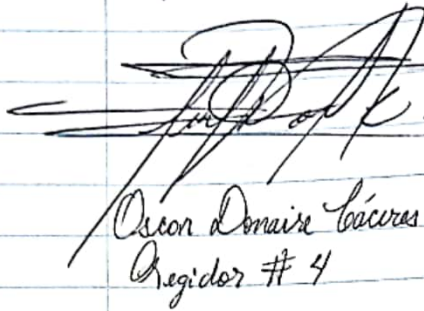 Oscar Donaire Cáceres
Regidor # 4